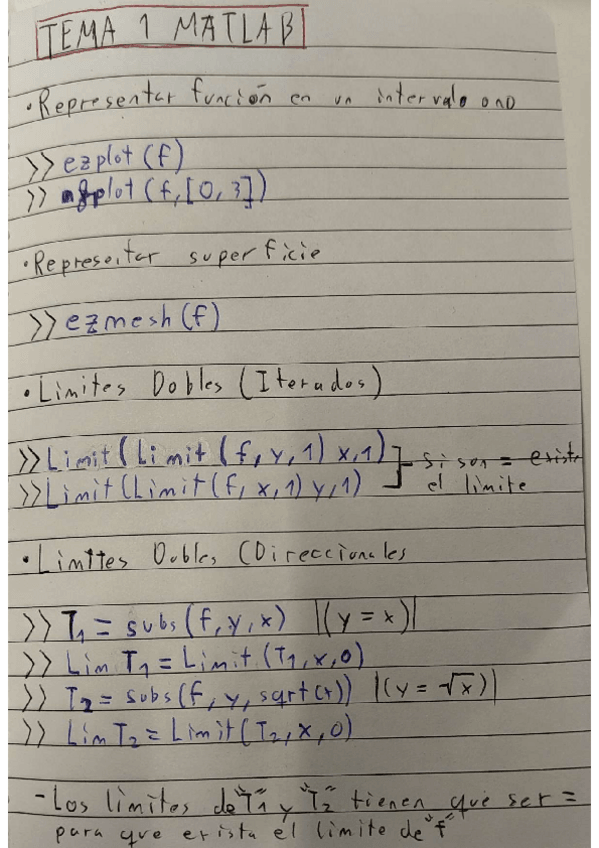 TEMA 1 MATLAB
• Representar función en un intervalo o no
>> ezplot (f)
>> plot (f, [0, 3])
• Representar superficie
>> ezmesh (f)
• Limites Dobles (Iterados)
>> Limit (Limit (f, y, 1) x, 1)
>> Limit (Limit (f, x, 1) y, 1)
Si son = existe
el limite
• Limites Dobles (Direccionales
>> T1 = subs (f, y, x) |(y = x)|
>> Lim T1 = Limit (T1, x, 0)
>> T2 = subs (f, y, sqrt (x)) |(y = √x)|
>> Lim T2 = Limit (T2, x, 0)
- Los limites de "T1" y "T2" tienen que ser =
para que exista el limite de "f"